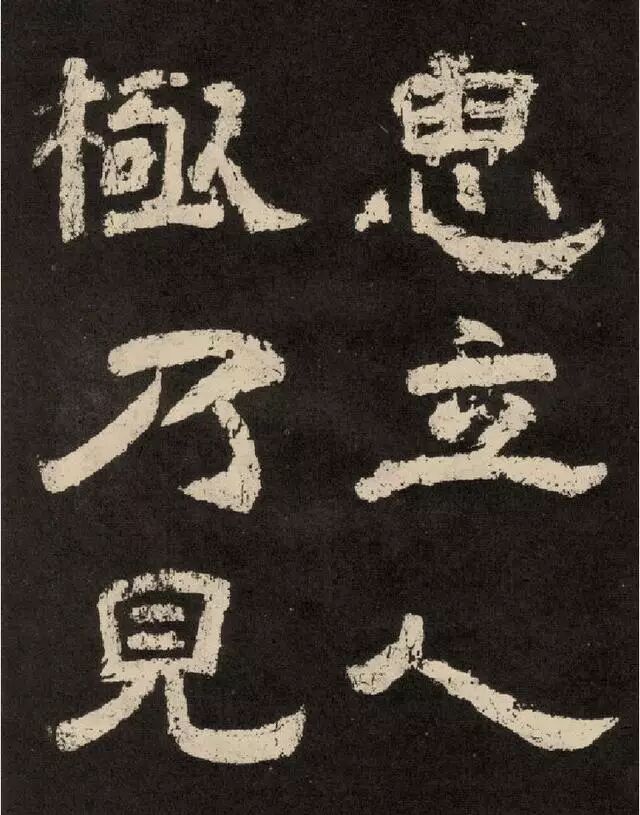 患立人
極乃見